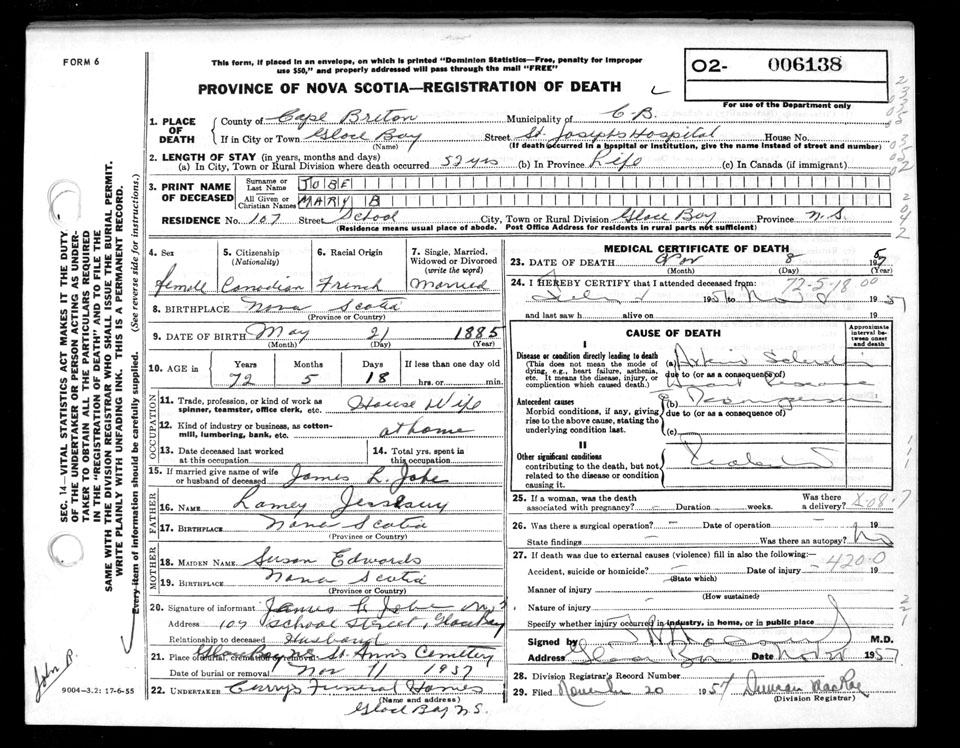 FORM 6
This form, if placed in an envelope, on which is printed "Dominion Statistics—Free, penalty for improper
use $50," and properly addressed will pass through the mail "FREE"
O2- 006138
PROVINCE OF NOVA SCOTIA—REGISTRATION OF DEATH
For use of the Department only
1. PLACE OF DEATH
County of Cape Breton Municipality of C.B.
If in City or Town Glace Bay Street St. Josephs Hospital House No.
(Name) (If death occurred in a hospital or institution, give the name instead of street and number)
2. LENGTH OF STAY (in years, months and days)
(a) In City, Town or Rural Division where death occurred 52 yrs (b) In Province Life (c) In Canada (if immigrant)
3. PRINT NAME OF DECEASED
Surname or Last Name JOBE
All Given or Christian Names MARY B
RESIDENCE No. 107 Street School City, Town or Rural Division Glace Bay Province N.S.
(Residence means usual place of abode. Post Office Address for residents in rural parts not sufficient)
4. Sex
female
5. Citizenship
(Nationality)
Canadian
6. Racial Origin
French
7. Single, Married,
Widowed or Divorced
(write the word)
Married
8. BIRTHPLACE Nova Scotia
(Province or Country)
9. DATE OF BIRTH May 21 1885
(Month) (Day) (Year)
10. AGE in
Years Months Days If less than one day old
72 5 18 hrs. or min.
OCCUPATION
11. Trade, profession, or kind of work as
spinner, teamster, office clerk, etc. House Wife
12. Kind of industry or business, as cotton-
mill, lumbering, bank, etc. at home
13. Date deceased last worked
at this occupation
14. Total yrs. spent in
this occupation
15. If married give name of wife
or husband of deceased James L. Jobe
FATHER
16. NAME
17. BIRTHPLACE Nova Scotia
(Province or Country)
MOTHER
18. MAIDEN NAME Susan Edwards
19. BIRTHPLACE Nova Scotia
(Province or Country)
20. Signature of informant James L Jobe
Address 107 School Street, Glace Bay
Relationship to deceased Husband
21. Place of burial, cremation or removal Glace Bay N.S. St. Ann's Cemetery
Date of burial or removal Nov 11 1957
22. UNDERTAKER Curry's Funeral Homes
(Name and address)
Glace Bay N.S.
MEDICAL CERTIFICATE OF DEATH
23. DATE OF DEATH Nov 8 1957
(Month) (Day) (Year)
24. I HEREBY CERTIFY that I attended deceased from:
72-5-18 00
1957 to Nov 8 1957
and last saw h alive on 19
CAUSE OF DEATH
Approximate
interval be-
tween onset
and death
I
Disease or condition directly leading to death
(This does not mean the mode of
dying, e.g., heart failure, asthenia,
etc. It means the disease, injury, or
complication which caused death.)
(a)
due to (or as a consequence of)
Antecedent causes
Morbid conditions, if any, giving
rise to the above cause, stating the
underlying condition last.
(b)
due to (or as a consequence of)
(c)
II
Other significant conditions
contributing to the death, but not
related to the disease or condition
causing it.
25. If a woman, was the death
associated with pregnancy? – Duration weeks. Was there
a delivery?
26. Was there a surgical operation? – Date of operation – 19
State findings – Was there an autopsy? No
27. If death was due to external causes (violence) fill in also the following:—
420-0
Accident, suicide or homicide? – Date of injury – 19
(State which)
Manner of injury
(How sustained)
Nature of injury –
Specify whether injury occurred in industry, in home, or in public place
Signed by M.D.
Address Glace Bay Date Nov 1957
28. Division Registrar's Record Number
29. Filed November 20 1957 Duncan MacRae
(Division Registrar)
SEC. 14—VITAL STATISTICS ACT MAKES IT THE DUTY
OF THE UNDERTAKER OR PERSON ACTING AS UNDER-
TAKER TO OBTAIN ALL THE PARTICULARS REQUIRED
IN THE "REGISTRATION OF DEATH" AND TO FILE THE
SAME WITH THE DIVISION REGISTRAR WHO SHALL ISSUE THE BURIAL PERMIT.
WRITE PLAINLY WITH UNFADING INK. THIS IS A PERMANENT RECORD.
Every item of information should be carefully supplied. (See reverse side for instructions.)
John P.
9004-3.2: 17-6-55